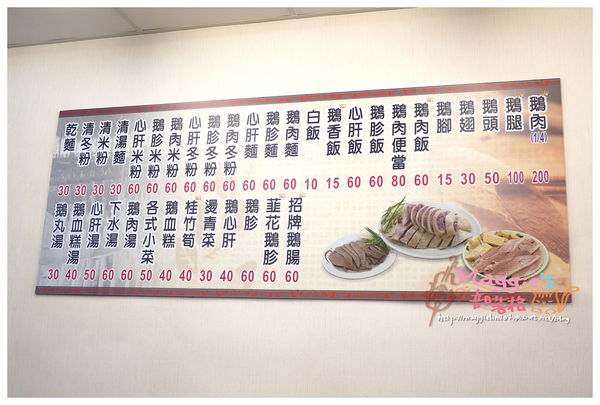 鵝肉(1/4) 200
鵝腿 100
鵝頭 50
鵝翅 30
鵝腳 15
鵝肉飯 60
鵝肉便當 80
鵝胗飯 60
心肝飯 60
鵝香飯 15
白飯 10
鵝肉麵 60
鵝胗麵 60
心肝麵 60
鵝肉冬粉 60
鵝胗冬粉 60
心肝冬粉 60
鵝肉米粉 60
鵝胗米粉 60
心肝米粉 60
清湯麵 30
清米粉 30
清冬粉 30
乾麵 30
招牌鵝腸 60
韮花鵝胗 60
鵝胗 60
鵝心肝 40
燙青菜 30
桂竹筍 40
鵝血糕 40
各式小菜 50
鵝肉湯 60
下水湯 60
心肝湯 50
鵝血糕湯 40
鵝丸湯 30
Maggie's
部落格